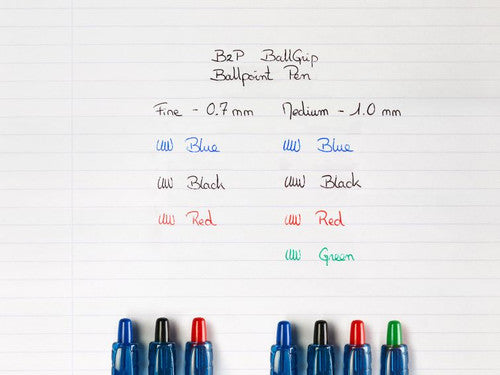 B2P BallGrip
Ballpoint Pen
Fine - 0.7 mm Medium - 1.0 mm
Blue Blue
Black Black
Red Red
Green